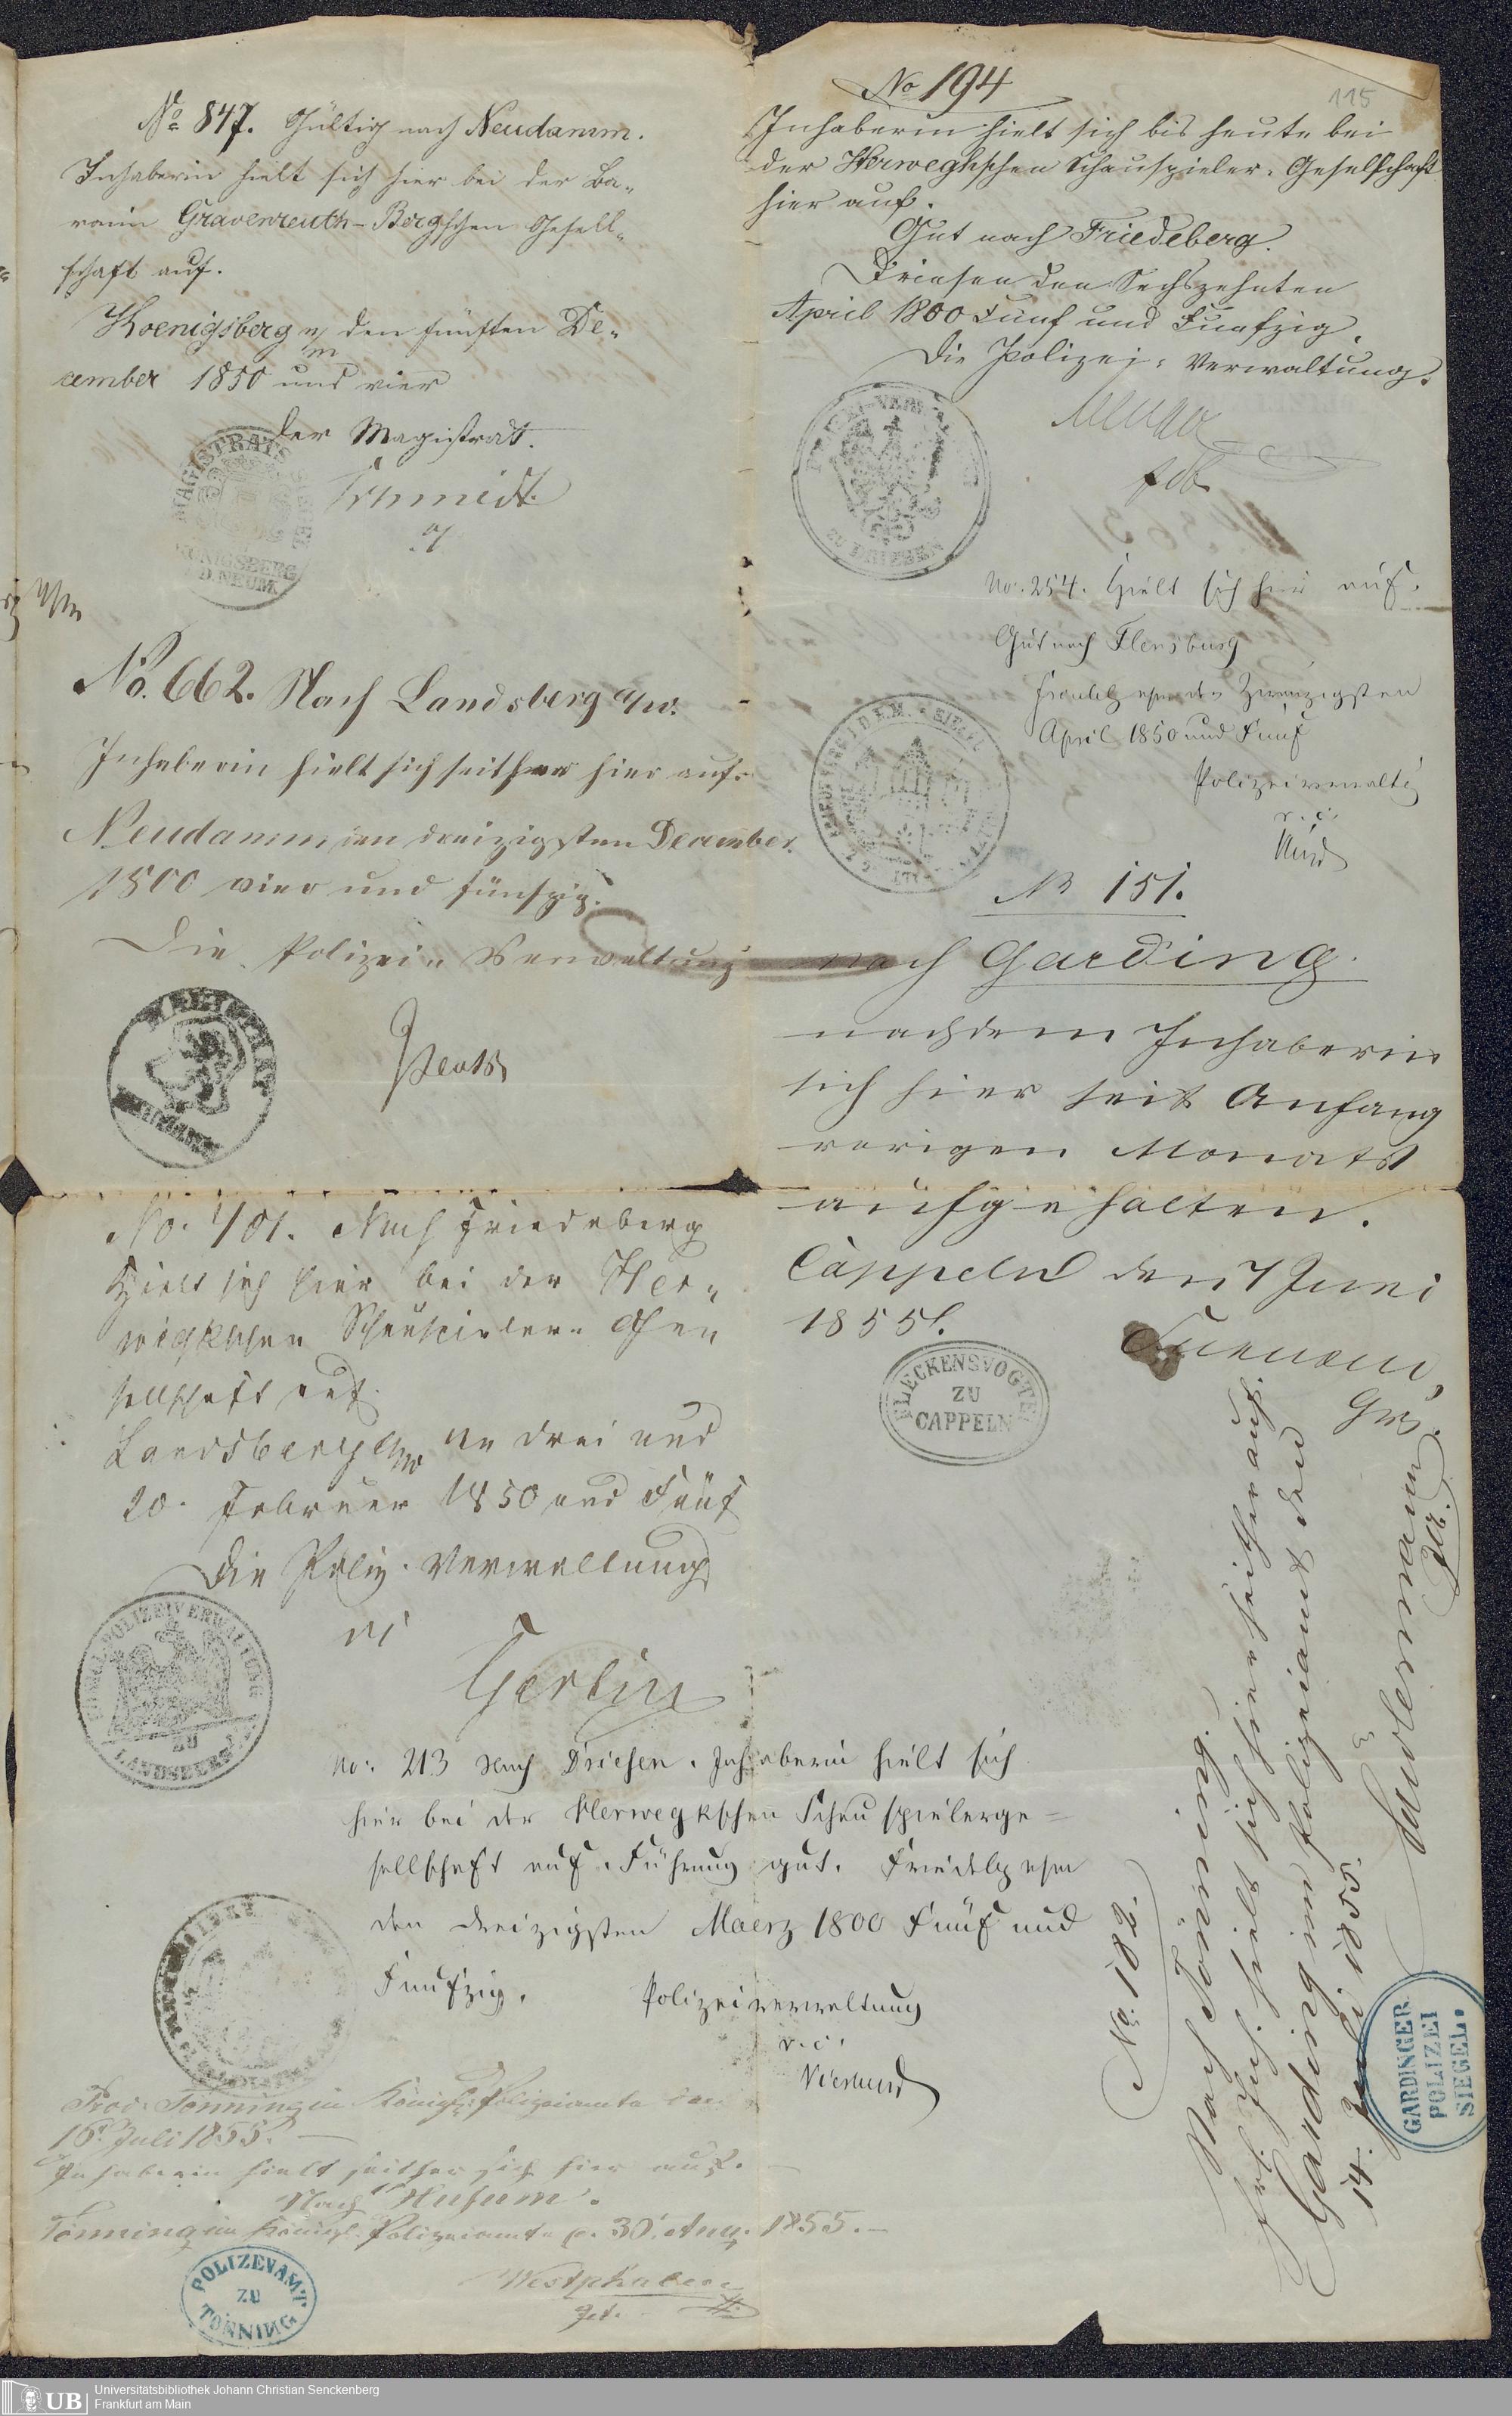 No 847. Gültig nach Neudamm.
Inhaberin hielt sich hier bei der Ba-
ronin Gravenreuth-Bergschen Gesell-
schaft auf.
Koenigsberg n/m den fünften De-
cember 1850 und vier
Der Magistrat.
Schmidt
MAGISTRATS SIEGEL
KÖNIGSBERG
I.D. NEUM.
No. 662. Nach Landsberg a/w.
Inhaberin hielt sich seither hier auf.
Neudamm den dreizigsten December
1800 vier und fünfzig.
Die Polizei-Verwaltung
No. 401. Nach Friedeberg
Hielt sich hier bei der Her-
wegkschen Schauspieler-Ge-
sellschaft auf.
Landsberg a/w den drei und
20. Februar 1850 und Fünf
Die Poliz. Verwaltung
Gerlin
KÖNIGL. POLIZEIVERWALTUNG
ZU
LANDSBERG
No: 213 Nach Driesen. Inhaberin hielt sich
hier bei der Herwegkschen Schauspielerge=
sellschaft auf. Führung gut. Friedeb
den dreizigsten Maerz 1800 Fünf und
Funfzig. Polizeiverwaltung
v. c.
Prod. Tönning im Königl. Polizeiamte den
16. Juli 1855.
Inhaberin hielt seither sich hier auf.
Nach Husum.
Tönning im Königl. Polizeiamte d. 30. Aug. 1855.
Westphalen
POLIZEYAMT
ZU
TÖNNING
115
No 194
Inhaberin hielt sich bis heute bei
der Herweghschen Schauspieler-Gesellschaft
hier auf.
Gut nach Friedeberg.
Driesen den Sechszehnten
April 1800 Fünf und Funfzig.
Die Polizei-Verwaltung.
POLIZEI-VERWALTUNG
ZU DRIESEN
No. 254. Hielt sich hier auf.
Gut nach Flensburg
den Zwanzigsten
April 1850 und Fünf
Polizeiverwaltg
v. c.
No 151.
nach Garding.
nachdem Inhaberin
sich hier seit Anfang
vorigen Monats
aufgehalten.
Cappeln den 7 Juni
1855.
FLECKENSVOGTEI
ZU
CAPPELN
No. 182.
Nach Tönning.
hielt sich hier seither auf.
Garding im Polizeiamt den
14. Juli 1855.
GARDINGER
POLIZEI
SIEGEL.
UB
Universitätsbibliothek Johann Christian Senckenberg
Frankfurt am Main